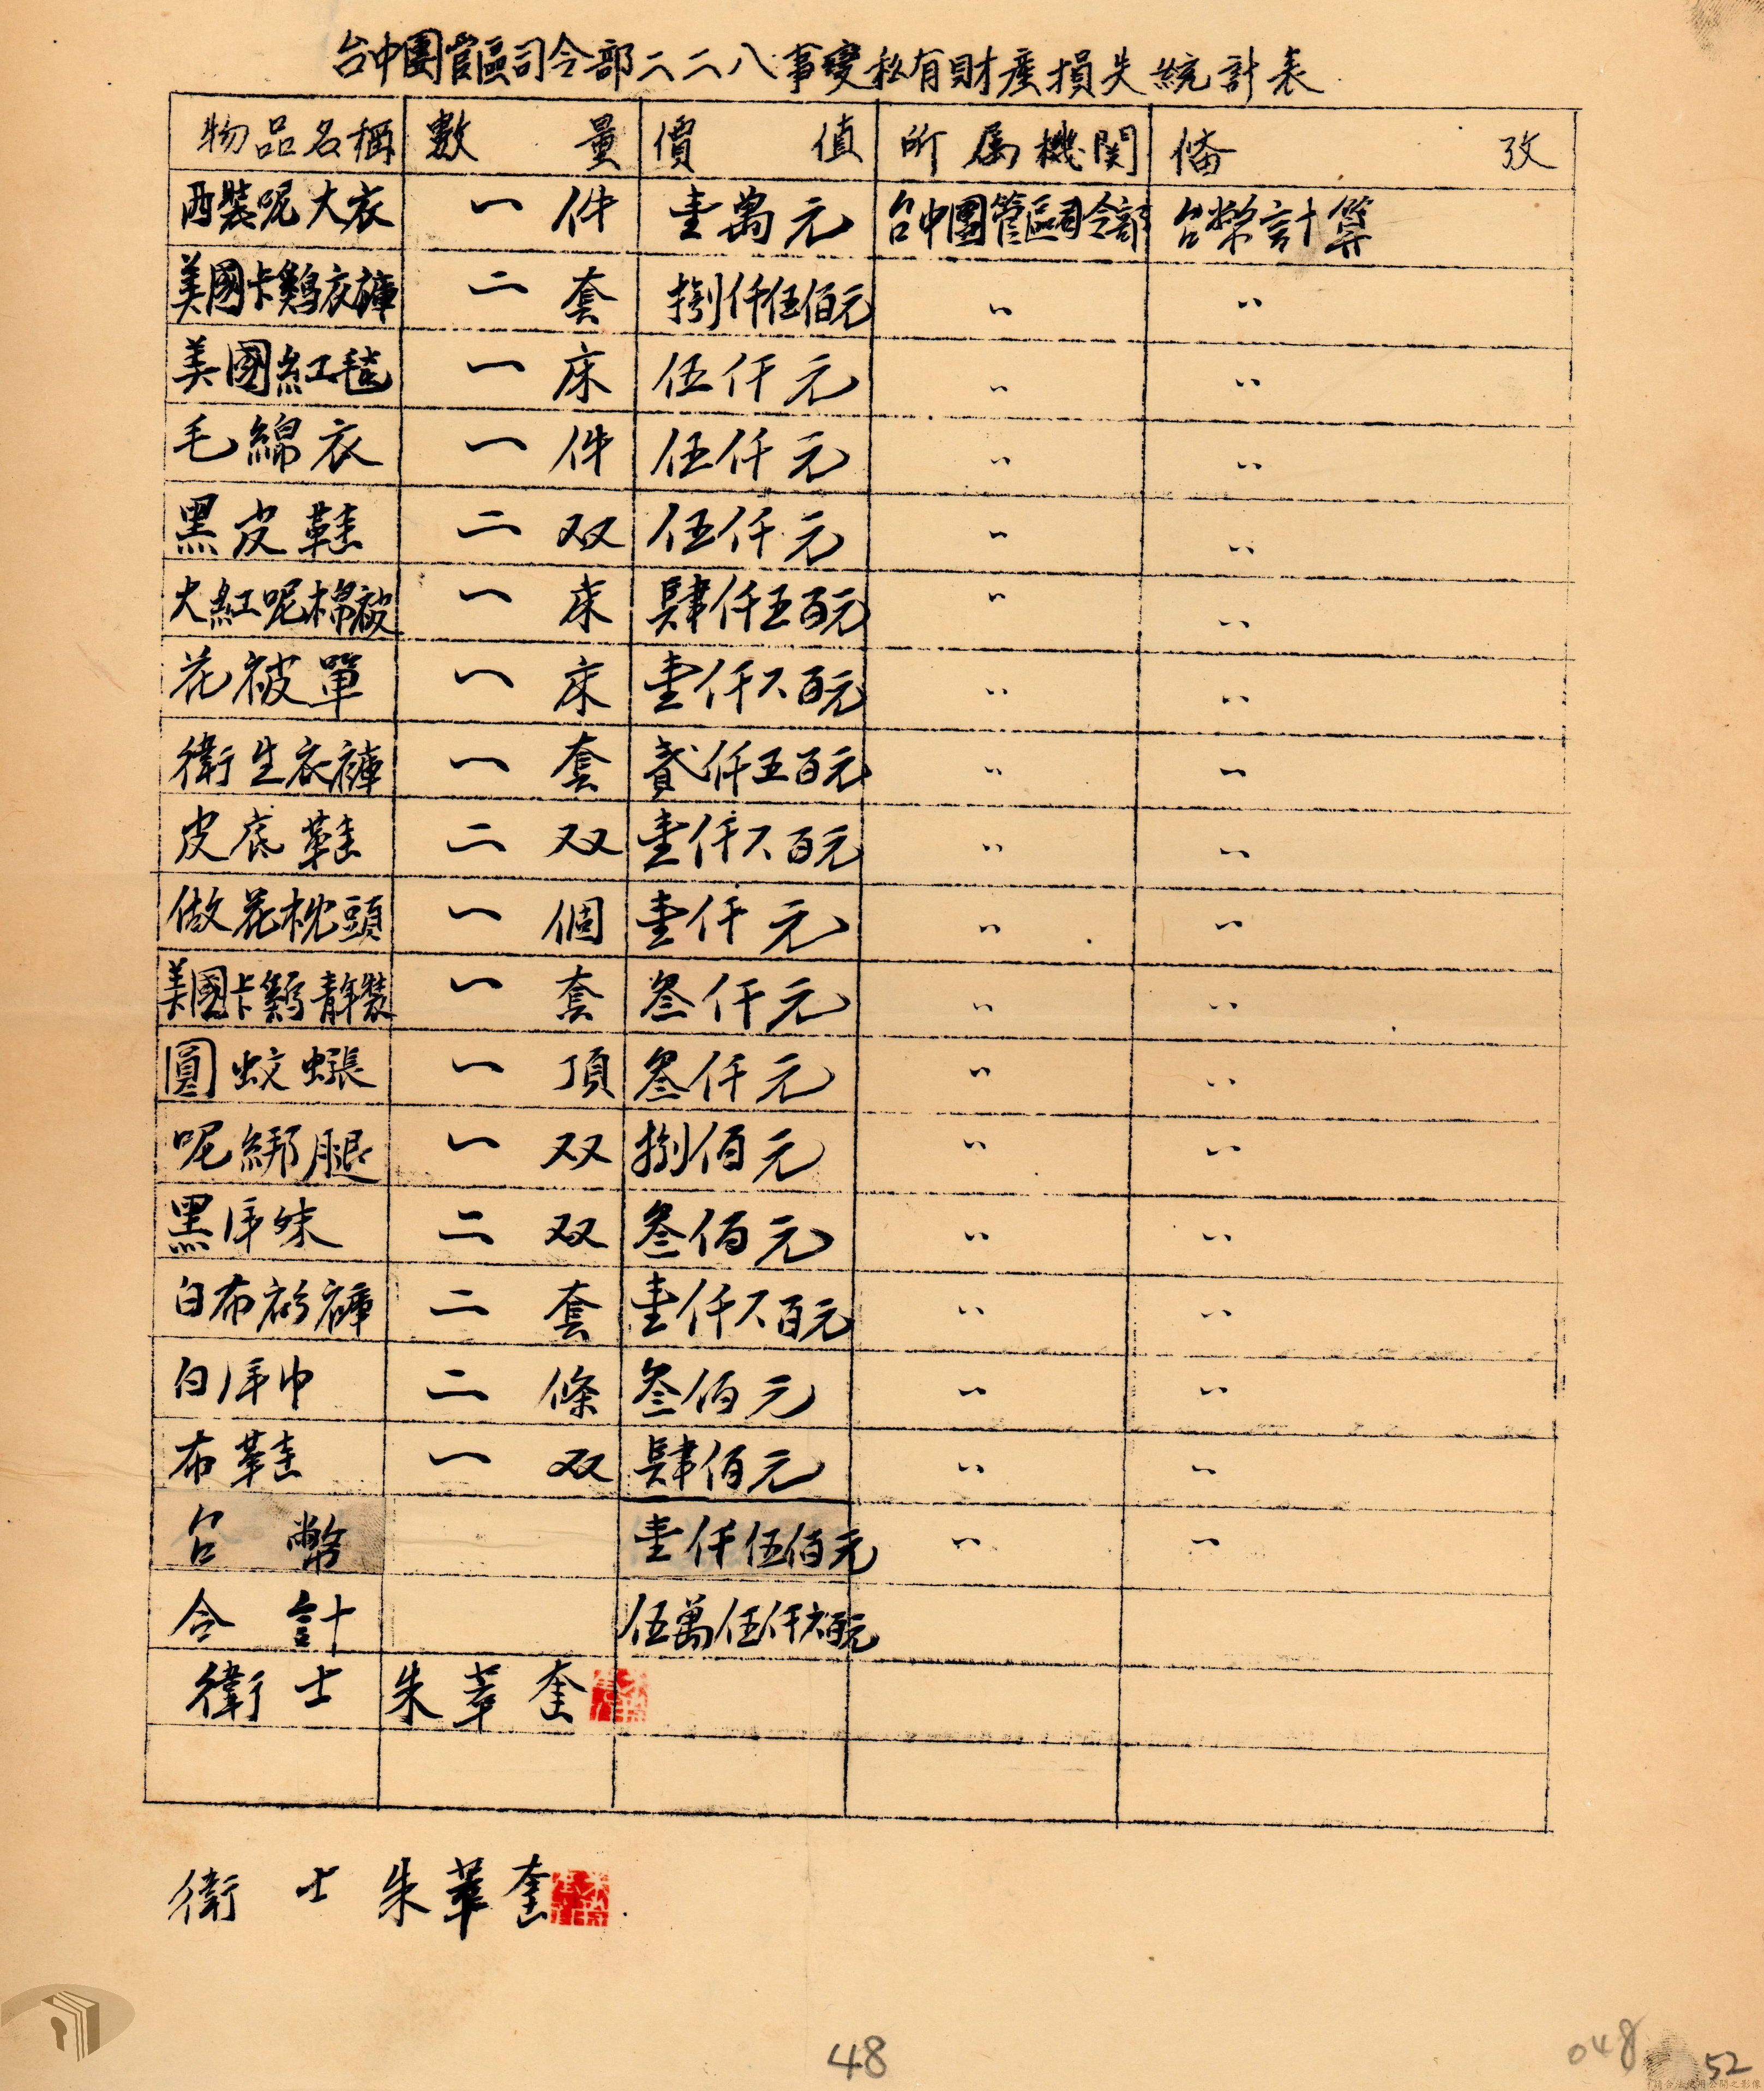 台中團管區司令部二二八事變私有財產損失統計表
物品名稱 數量 價值 所属機関 俻攷
西裝呢大衣 一件 壹萬元 台中團管區司令部 台幣計算
美國卡鷄衣褲 二套 捌仟伍佰元 〃 〃
美國紅毯 一床 伍仟元 〃 〃
毛綿衣 一件 伍仟元 〃 〃
黑皮鞋 二双 伍仟元 〃 〃
大紅呢棉被 一床 肆仟五百元 〃 〃
花被單 一床 壹仟六百元 〃 〃
衛生衣褲 一套 貳仟五百元 〃 〃
皮底鞋 二双 壹仟六百元 〃 〃
做花枕頭 一個 壹仟元 〃 〃
美國卡鷄青年裝 一套 叁仟元 〃 〃
圓蚊蟵 一頂 叁仟元 〃 〃
呢綁腿 一双 捌佰元 〃 〃
黑洋袜 二双 叁佰元 〃 〃
白布衫褲 二套 壹仟六百元 〃 〃
白洋巾 二條 叁佰元 〃 〃
布鞋 一双 肆佰元 〃 〃
台幣 壹仟伍佰元 〃 〃
合計 伍萬伍仟六百元
衛士 朱萃奎
衛士 朱萃奎
48
048
52